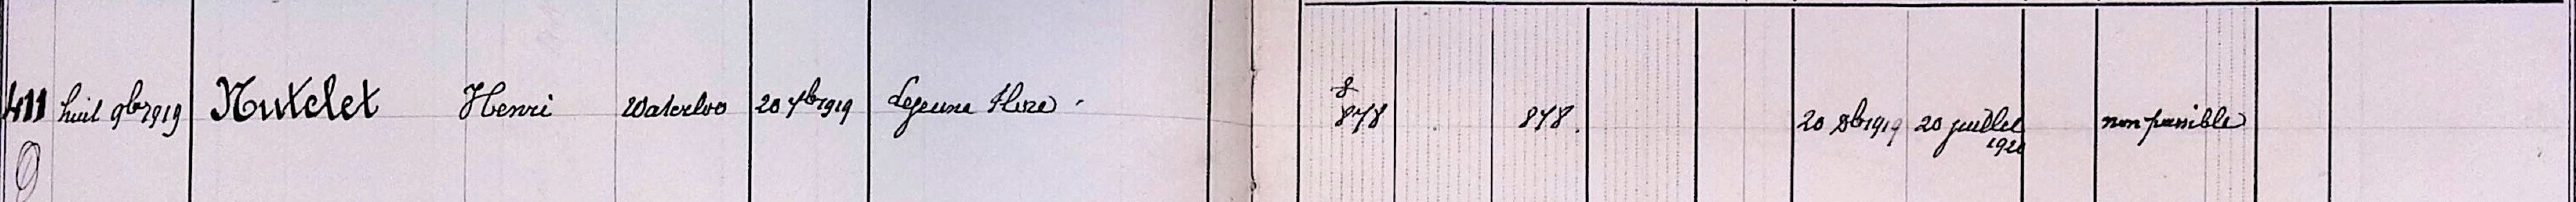 411 huit 9bre 1919 Nutelet Henri Waterloo 20 7bre 1919 Lejeune Flore 878 878. 20 Xbre 1919 20 juillet 1920 non passible